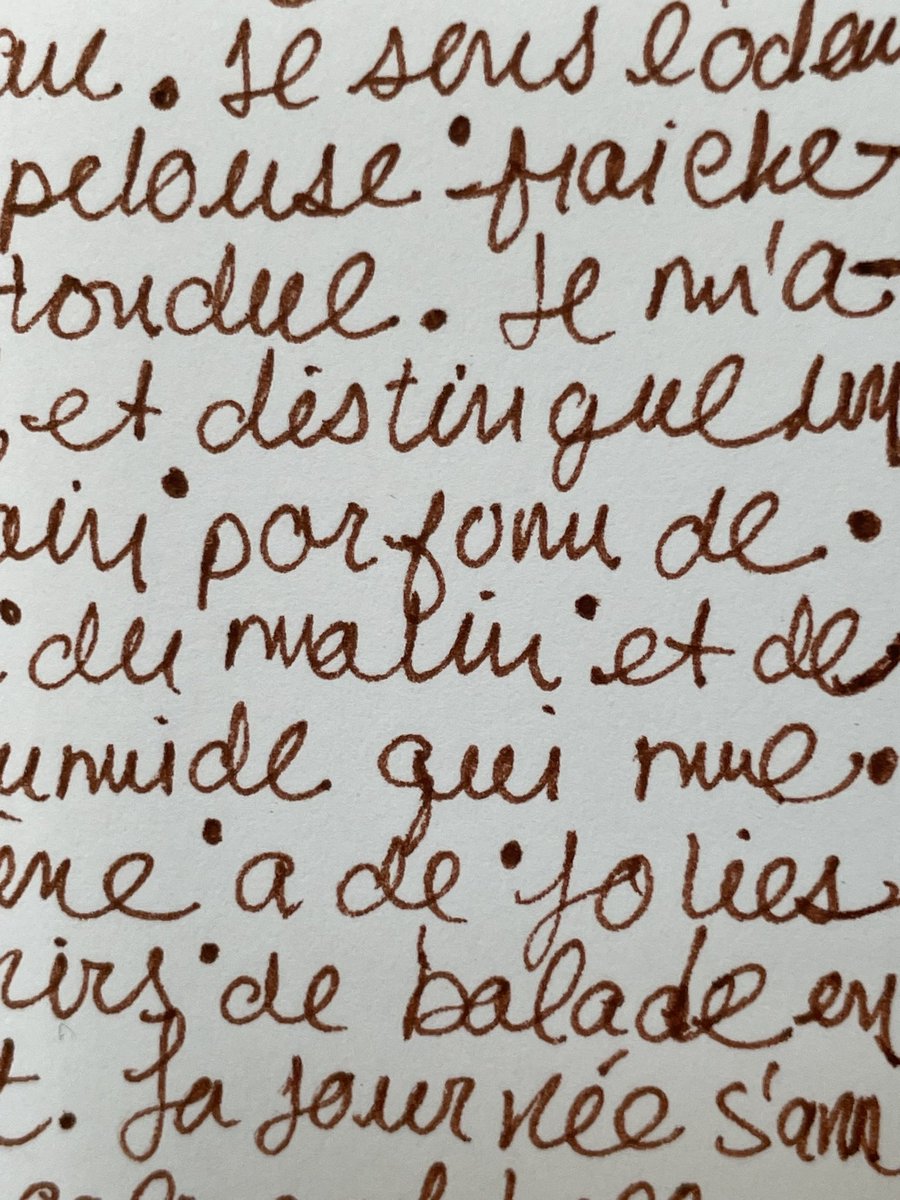 au. Je sens l'odeu
pelouse fraiche-
tondue. Je m'a-
, et distingue un
ain parfum de
du matin et de
umide qui me
ène a de jolies
nirs de balade en
t. La journée s'ann